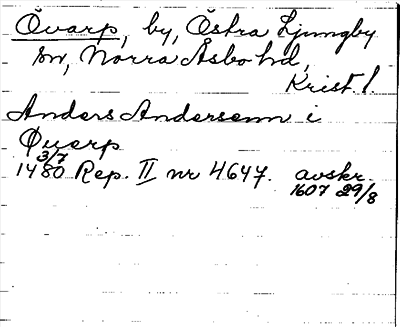 Övarp, by, Östra Ljungby
sn, Norra Åsbo hd,
Krist. l.
Anders Anderssenn i
Øuerp
3/7
1480 Rep. II nr 4647. avskr.
1607 29/8